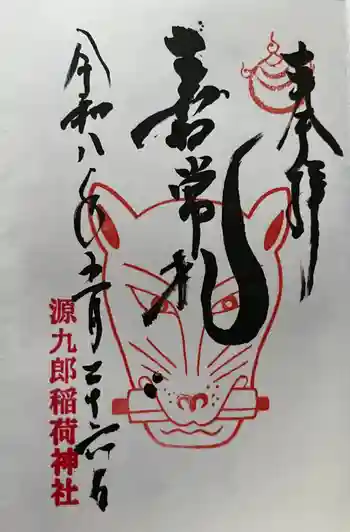 奉拝
喜常
令和八年 月二十六日
源九郎稲荷神社